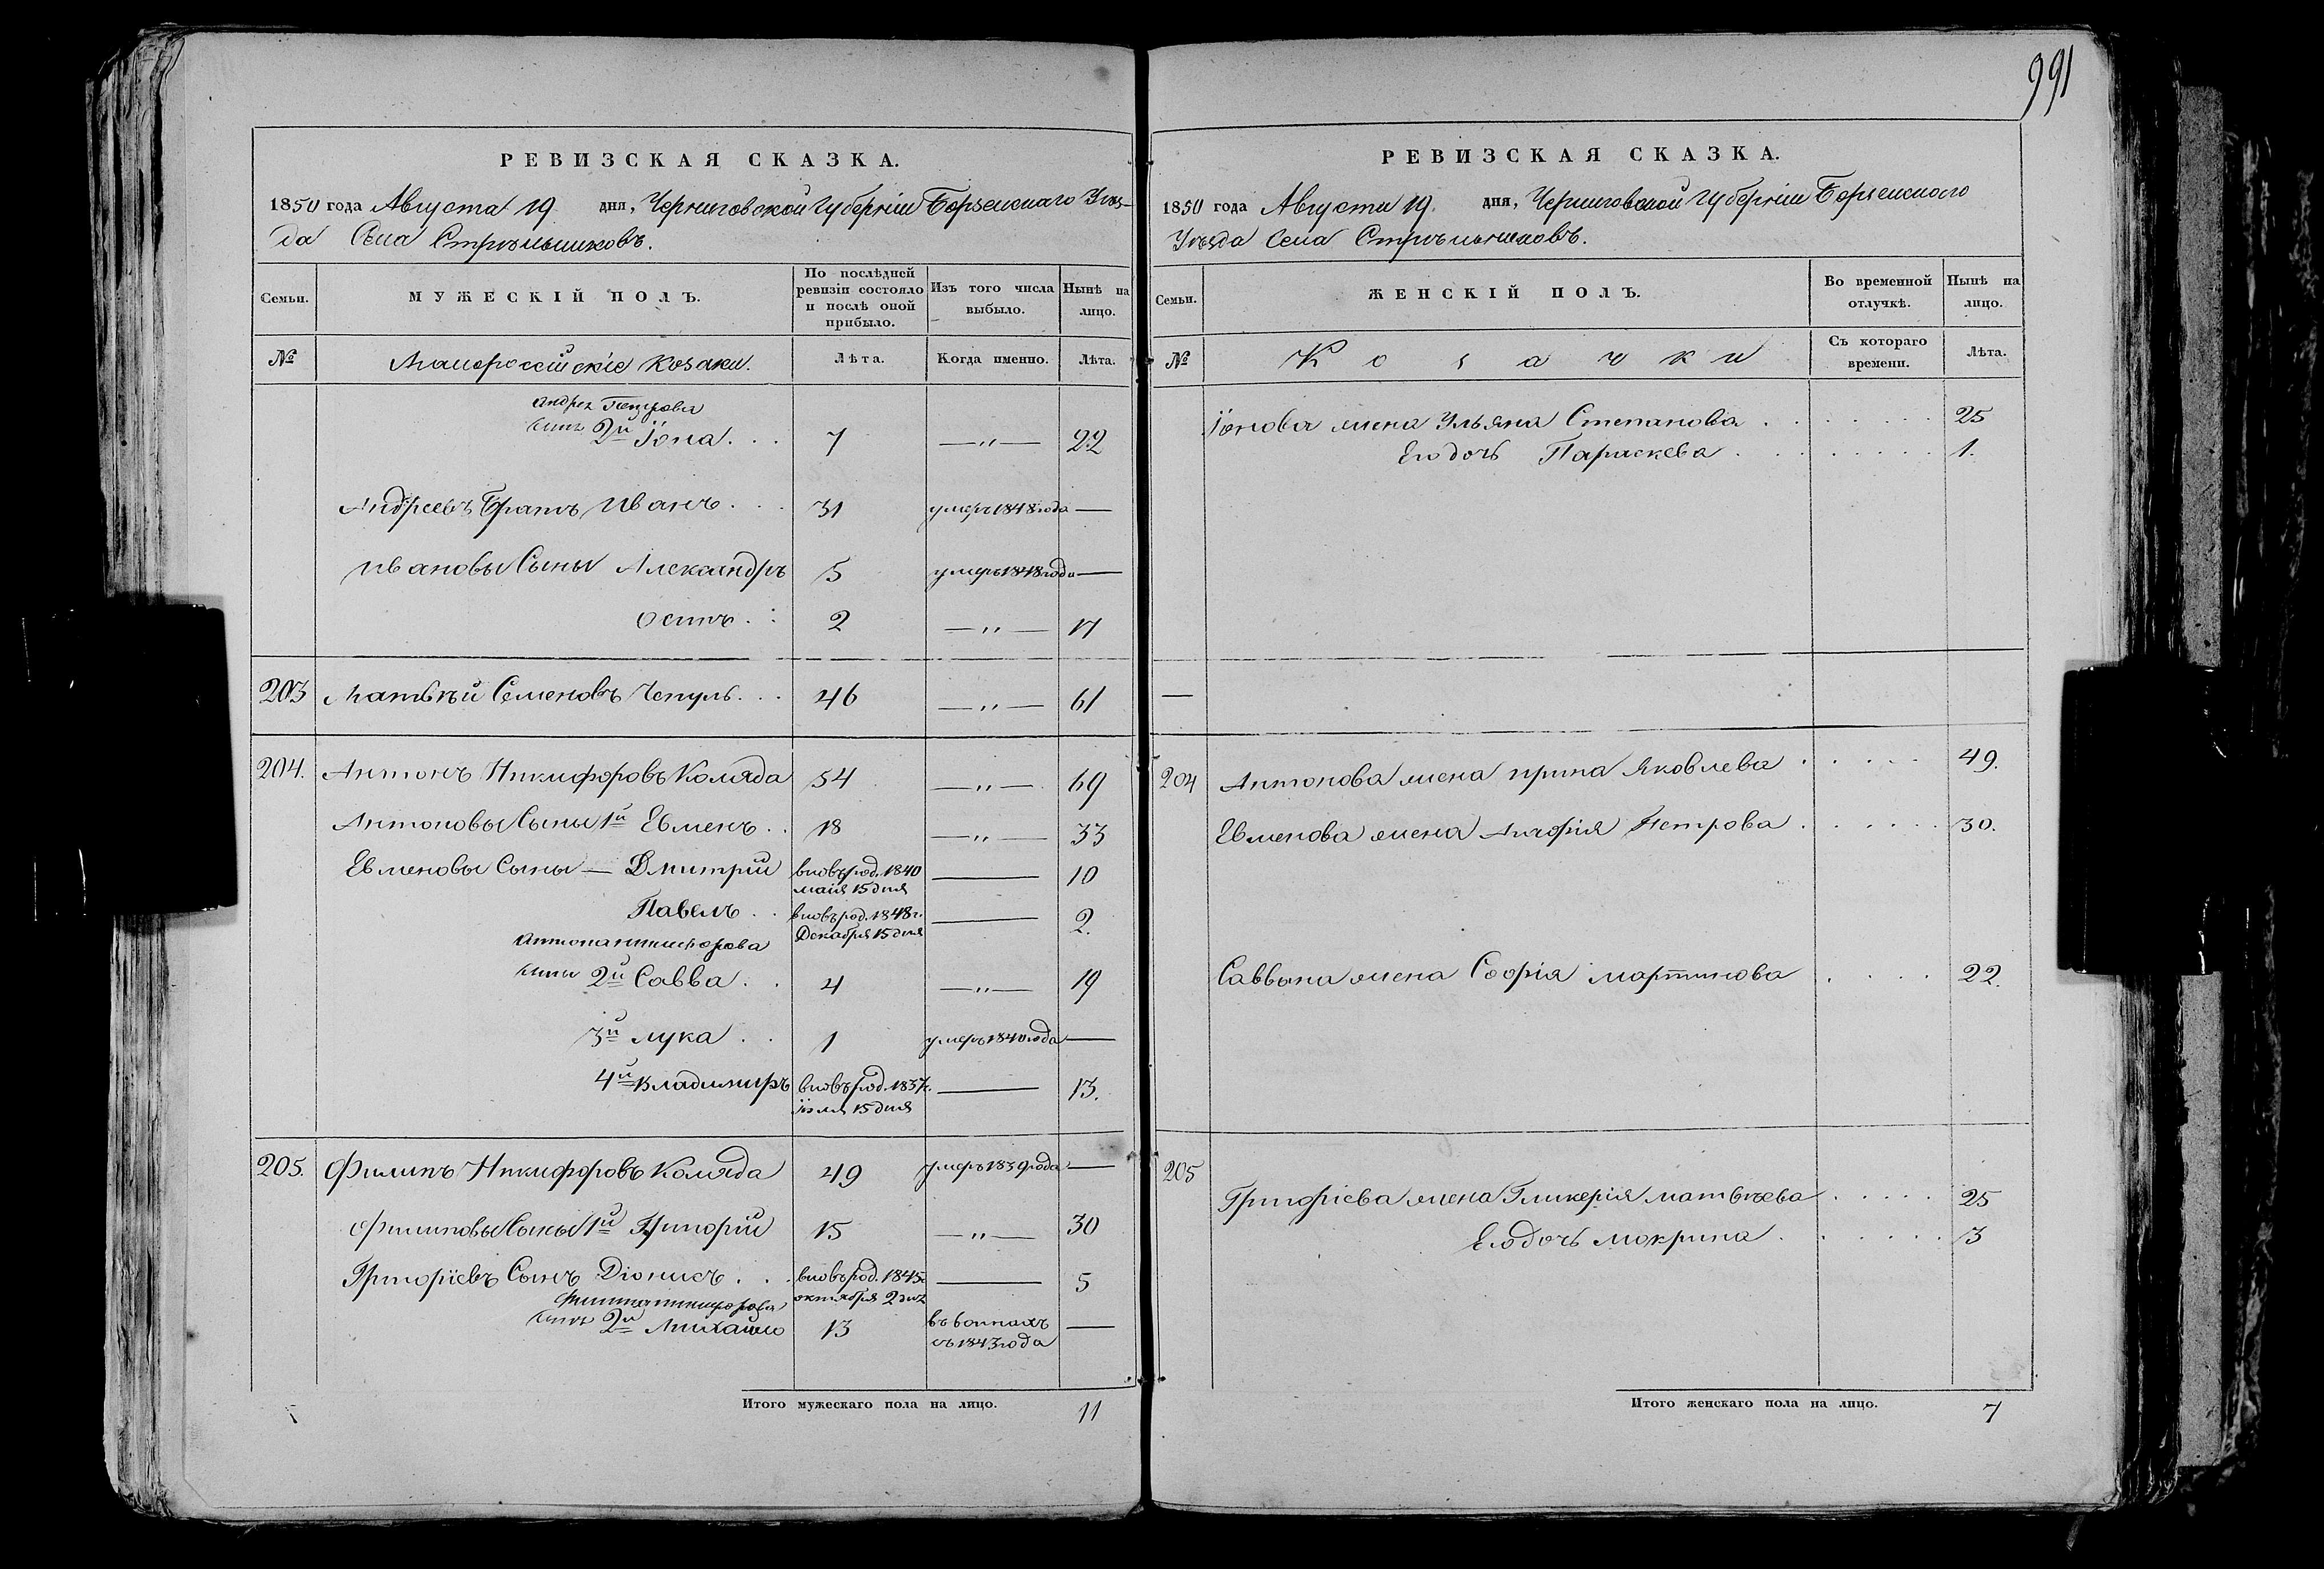 991
РЕВИЗСКАЯ СКАЗКА.
1850 года Августа 19 дня, Черниговской Губерніи Борзенскаго Уѣз-
да Села Стрѣльниковъ.
Семьи.
МУЖЕСКІЙ ПОЛЪ.
По послѣдней ревизіи состояло и послѣ оной прибыло.
Изъ того числа выбыло.
Нынѣ на лицо.
№
Малороссійскіе Козаки.
Лѣта.
Когда именно.
Лѣта.
Андрея Петрова
сынъ 2й Іона . . . 7 —"— 22
Андреевъ Братъ Иванъ . . . 31 умеръ 1848 года —
Ивановы Сыны Александръ 5 умеръ 1848 года —
Осипъ . : 2 —"— 17
203 Матвѣй Семеновъ Чепуль . . . 46 —"— 61
204. Антонъ Никифоровъ Коляда 54 —"— 69
Антоновы Сыны 1й Евменъ . . 18 —"— 33
Евменовы Сыны — Дмитрій вновь род. 1840 — 10
маія 15 дня
Павелъ . . вновь род. 1848 г. — 2.
Декабря 15 дня
Антона Никифорова
сыны 2й Савва . . 4 —"— 19
3й Лука . . 1 умеръ 1840 года —
4й Владимиръ вновь род. 1837 г. — 13.
Іюля 15 дня
205. Филипъ Никифоровъ Коляда 49 умеръ 1839 года —
Филиповы Сыны 1й Григорій 15 —"— 30
Григоріевъ Сынъ Діонисъ . . . вновь род. 1845 г. — 5
октября 2 дня
Филипа Никифорова
сынъ 2й Михайло 13 въ воинахъ —
съ 1843 года
Итого мужескаго пола на лицо. 11
РЕВИЗСКАЯ СКАЗКА.
1850 года Августа 19. дня, Черниговской Губерніи Борзенскаго
Уѣзда Села Стрѣльниковъ.
Семьи.
ЖЕНСКІЙ ПОЛЪ.
Во временной отлучкѣ.
Нынѣ на лицо.
№
Козачки
Съ котораго времени.
Лѣта.
Іонова жена Ульяна Степанова . . . . . . 25
Его дочь Параскева . . . . . . . 1.
—
204 Антонова жена Ирина Яковлева . . . . . 49.
Евменова жена Анфія Петрова . . . . . . 30.
Саввына жена Софія Мартинова . . . . 22.
205
Григоріева жена Гликерія Матвѣева . . . . . 25
Его дочь Мокрина . . . . . . 3
Итого женскаго пола на лицо. 7